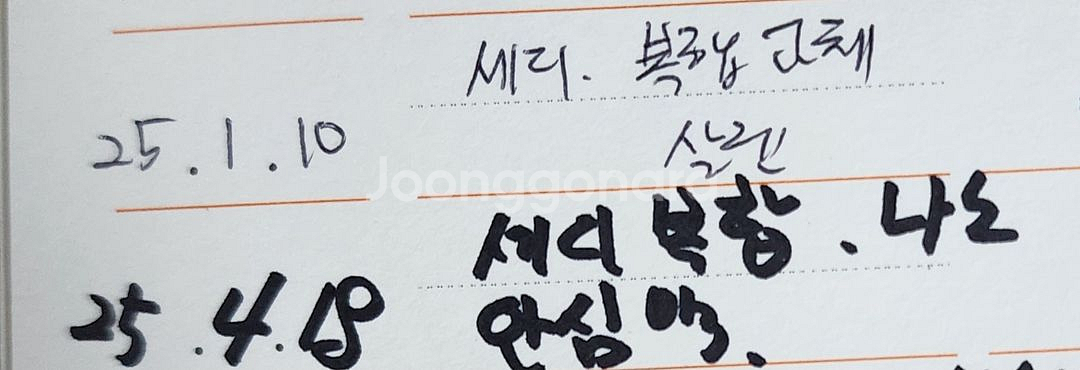 세디. 복합 교체
25.1.10 살균
Joonggonara
세디 복합. 나노
25.4.18 안심약.